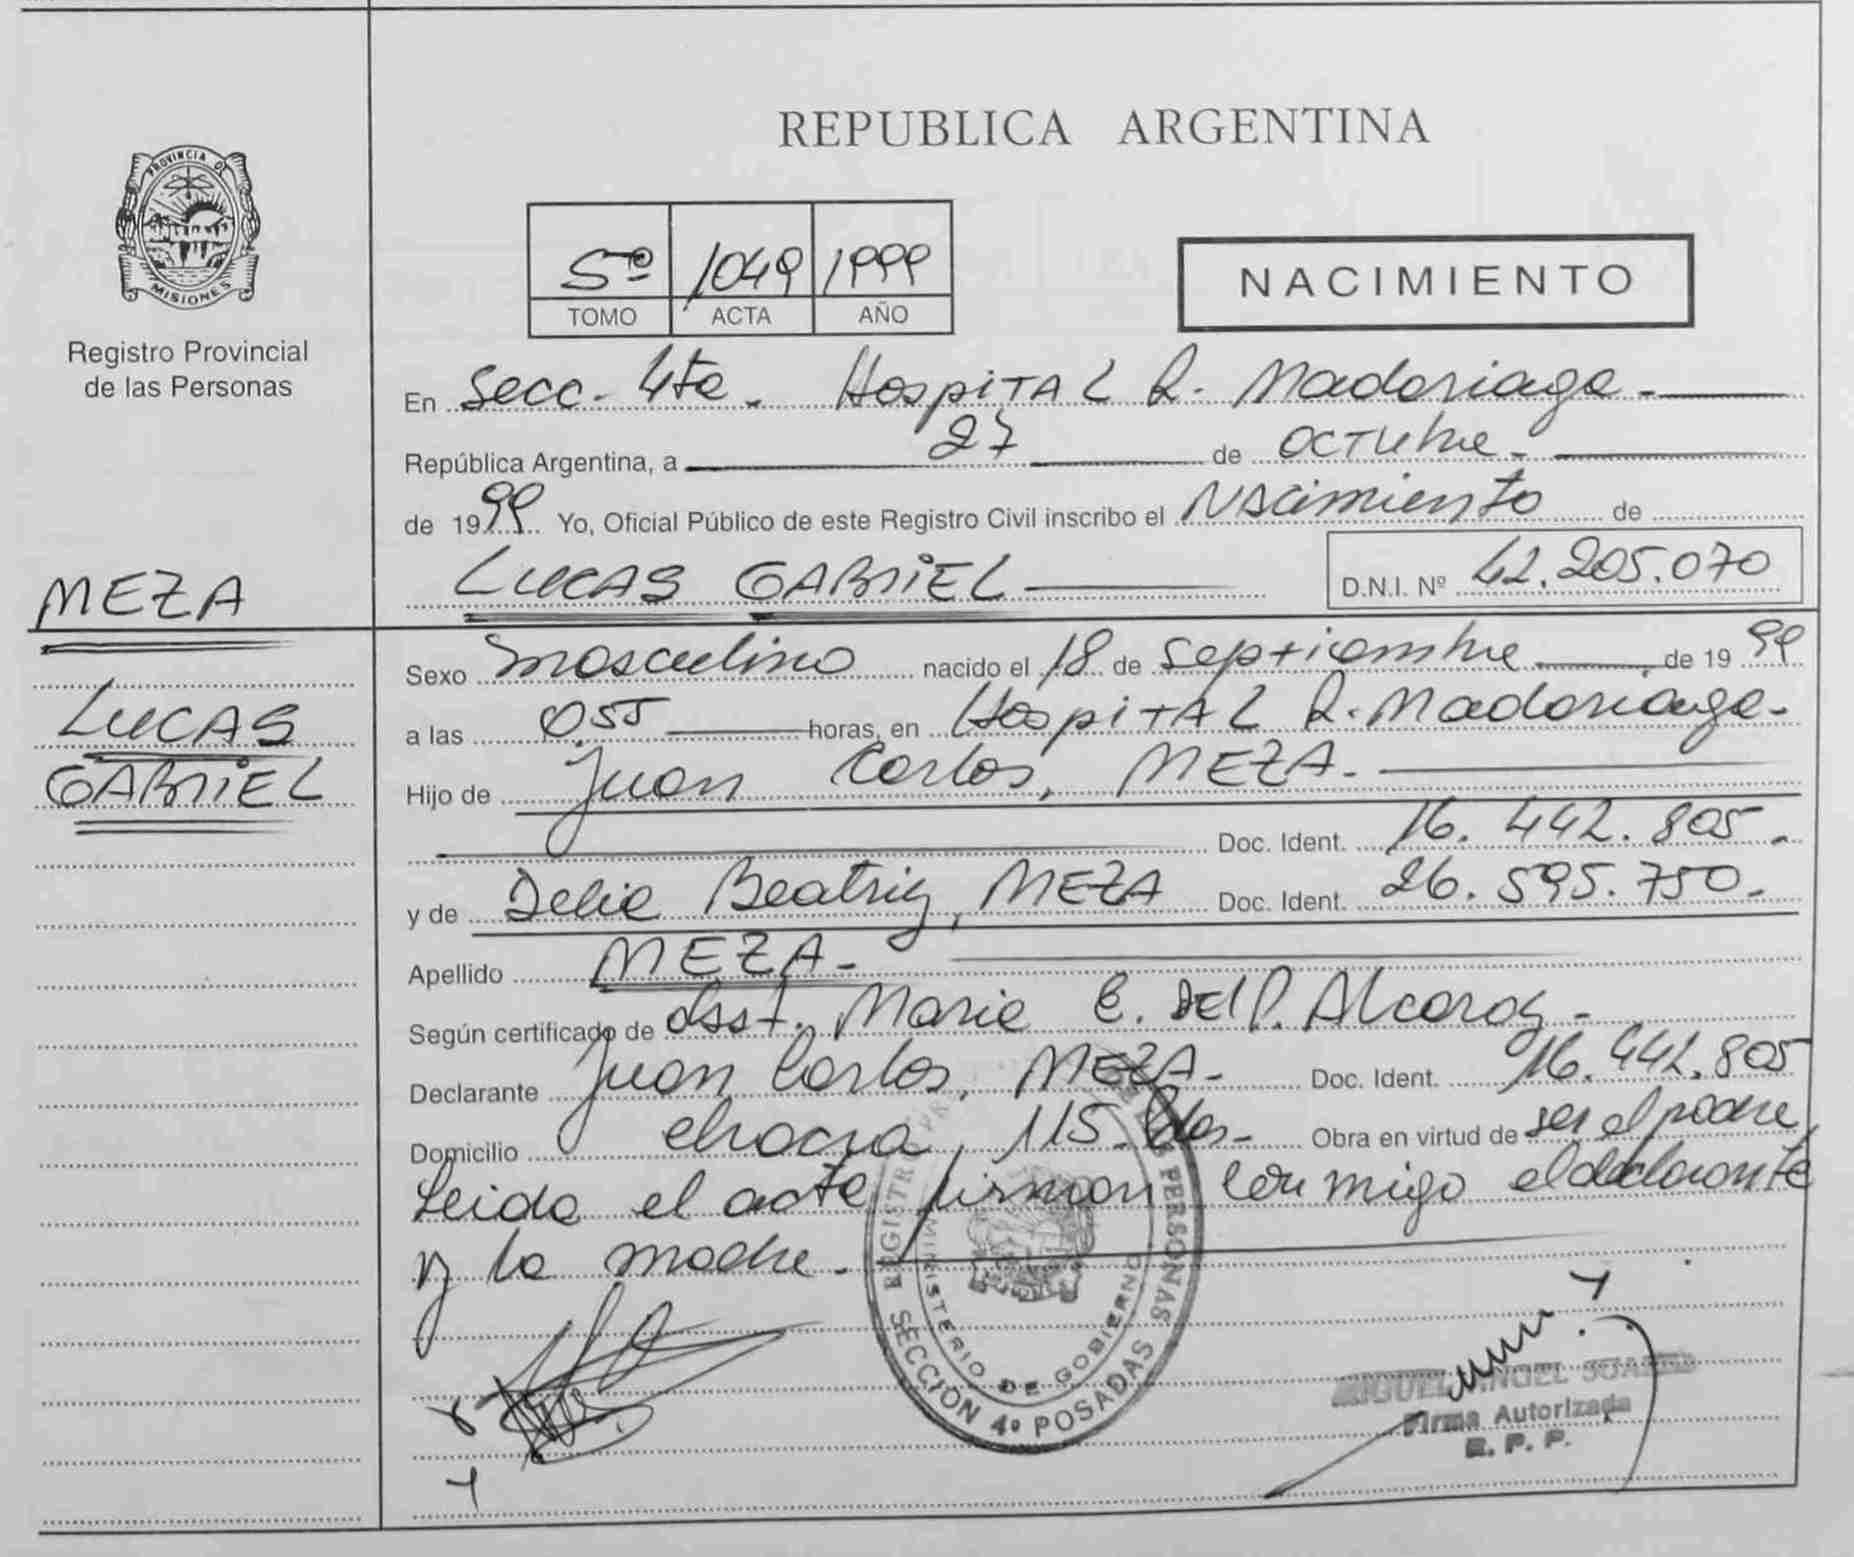 REPUBLICA ARGENTINA
PROVINCIA DE
MISIONES
Registro Provincial
de las Personas
5º 1049 1999
TOMO ACTA AÑO
NACIMIENTO
En Secc. 4ta. Hospital R. Madariaga.
República Argentina, a 27 de octubre.
de 1999 Yo, Oficial Público de este Registro Civil inscribo el Nacimiento de
LUCAS GABRIEL D.N.I. Nº 42.205.070
MEZA
LUCAS
GABRIEL
Sexo masculino nacido el 18 de septiembre de 1999
a las 055 horas, en Hospital R. Madariaga.
Hijo de Juan Carlos, MEZA.
Doc. Ident. 16.442.805.
y de Delia Beatriz, MEZA Doc. Ident. 26.595.750.
Apellido MEZA.
Según certificado de Obst. Maria E. Del P. Alcaraz.
Declarante Juan Carlos, MEZA. Doc. Ident. 16.442.805
Domicilio chacra, 115. Pdas. Obra en virtud de ser el padre
Leida el acta firman conmigo el declarante
y la madre.
REGISTRO PR DE LAS PERSONAS
MINISTERIO DE GOBIERNO
SECCIÓN 4º POSADAS
MIGUEL ANGEL SUAREZ
Firma Autorizada
R. P. P.